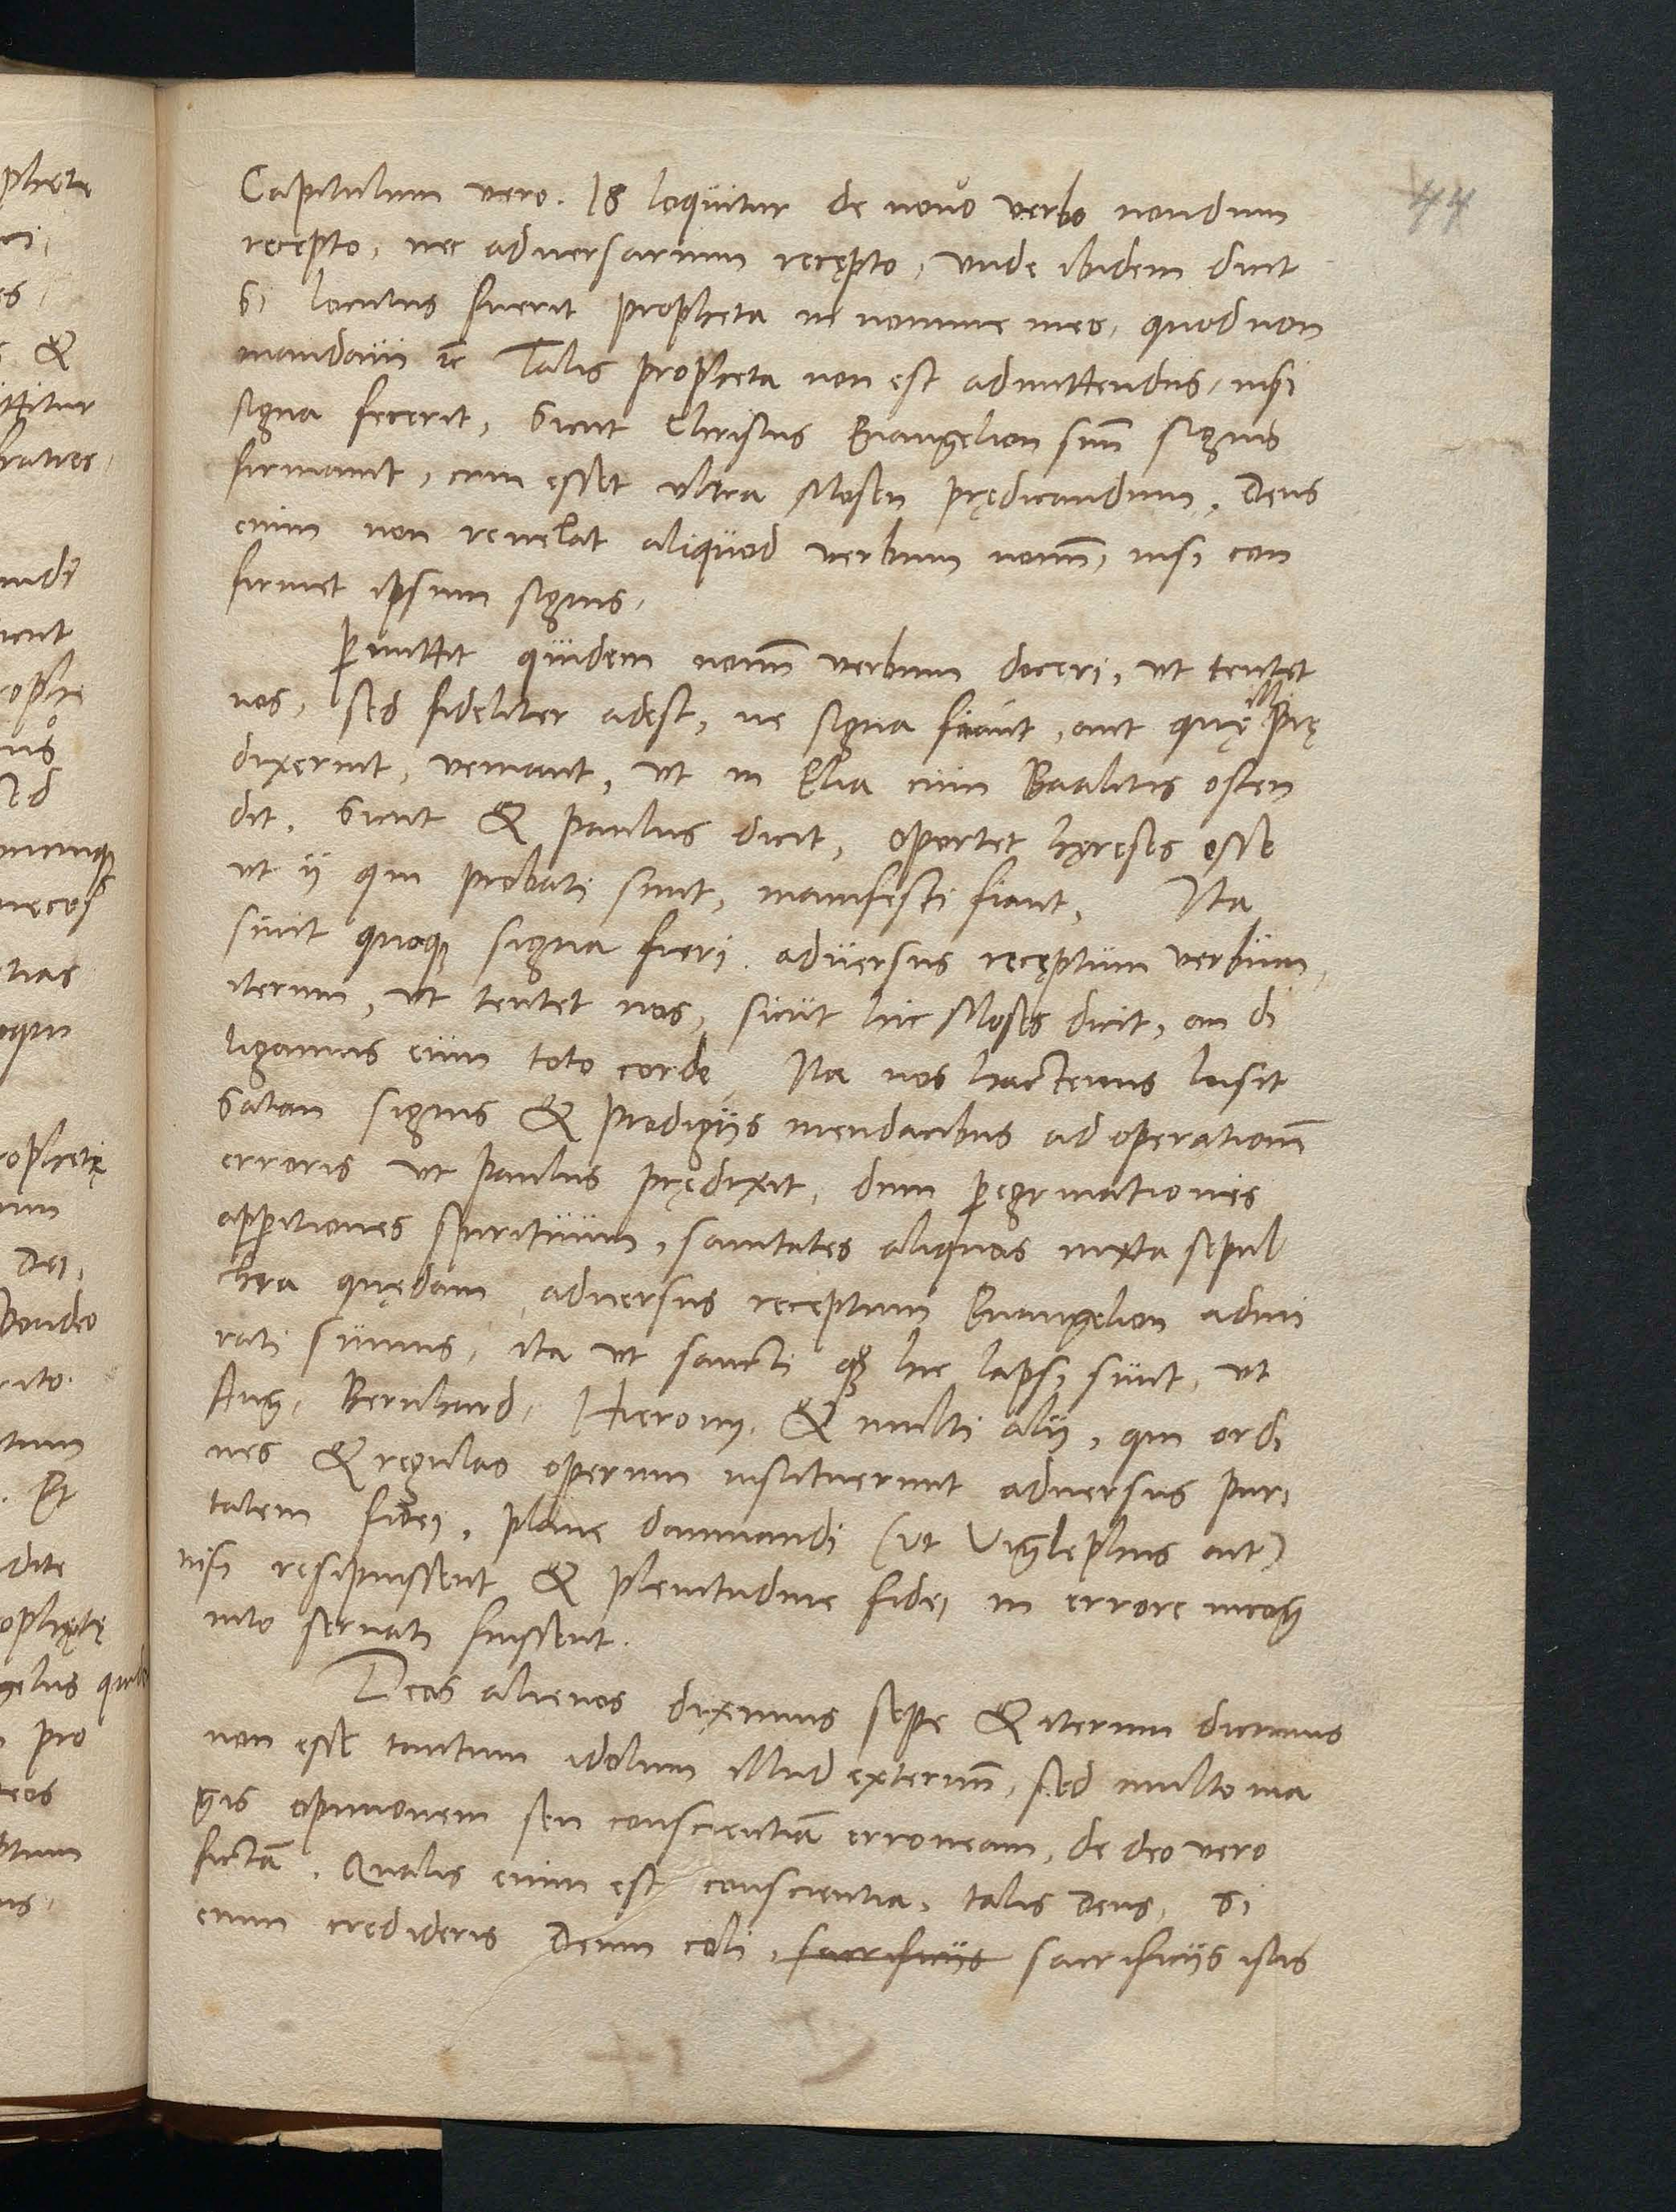 44
Capitulum vero. 18 loquitur de novo verbo nondum
recepto, nec adversarium recępto, vnde ibidem dicit
Si locutus fuerit propheta in nomine meo, quod non
mandavi ꝛc Talis propheta non est admittendus, nisi
signa fecerit, Sicut Christus Euangelion suū signis
firmauit, cum esset vltra Mosen prędicandum, Deus
enim non reuelat aliquod verbum nouū, nisi con
firmet ipsum signis,
ꝑmittit quidem nouū verbum doceri, vt tentet
nos, sed fideliter adest, ne signa fiant, aut quę illi prę
dixerint, veniant, vt in Elia cum Baalitis osten
dit, Sicut & paulus dicit, oportet hęreses esse
vt ij qui probati sunt, manifesti fiant, Ita
sinit quoqꝫ signa fieri adversus recęptum verbum,
iterum, vt tentet nos, sicut hic Moses dicit, an di
ligamus eum toto corde, Ita nos hactenus lusit
Satan signis & prodigijs mendacibus ad operationē
erroris vt paulus prędixit, dum ꝑegrinationes
apꝑitiones spirituum, sanitates aliquas iuxta sepul
chra quędam adversus receptum Euangelion admi
rati sumus, ita vt sancti qꝫ hic lapsi sunt, vt
Aug. Bernhard. Hierony. & multi alij, qui ordi
nes & regulas operum instituerunt adversus puri
tatem fidei, plane damnandi (vt Viglephus ait)
nisi resipuissent & plenitudine fidei in errore incog
nito seruati fuissent.
Deos alienos diximus sepe & iterum dicimus
non esse tantum idolum illud externū, sed multo ma
gis opinionem seu conscientiā erroneam, de deo vero
fictā. Qualis enim est conscientia, talis Deus, Si
enim credideris Deum coli, sacrificijs sacrificijs istis